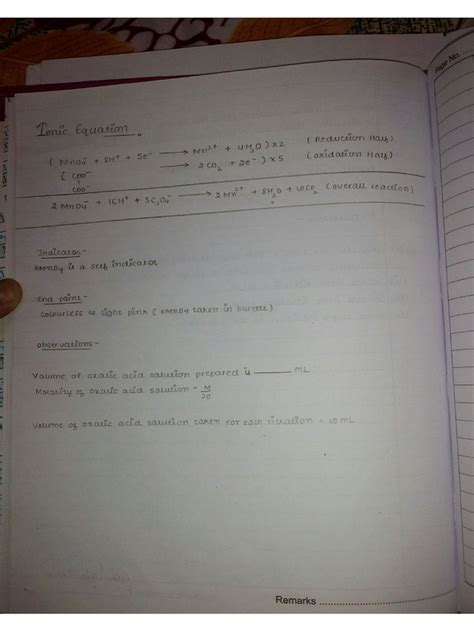 Page No.
Ionic Equation
( MnO4⁻ + 8H⁺ + 5e⁻ ⟶ Mn²⁺ + 4H2O ) x 2 ( Reduction Half )
( COO⁻ ⟶ 2CO2 + 2e⁻ ) x 5 ( Oxidation Half )
COO⁻
2MnO4⁻ + 16H⁺ + 5C2O4⁻ ⟶ 2Mn²⁺ + 8H2O + 10CO2 ( overall reaction )
Indicator -
KMnO4 is a self indicator
End point -
Colourless to light pink ( KMnO4 taken in burette )
Observations -
Volume of oxalic acid solution prepared is ______ mL
Molarity of oxalic acid solution = M/20
Volume of oxalic acid solution taken for each titration = 10 mL
Remarks ..............................